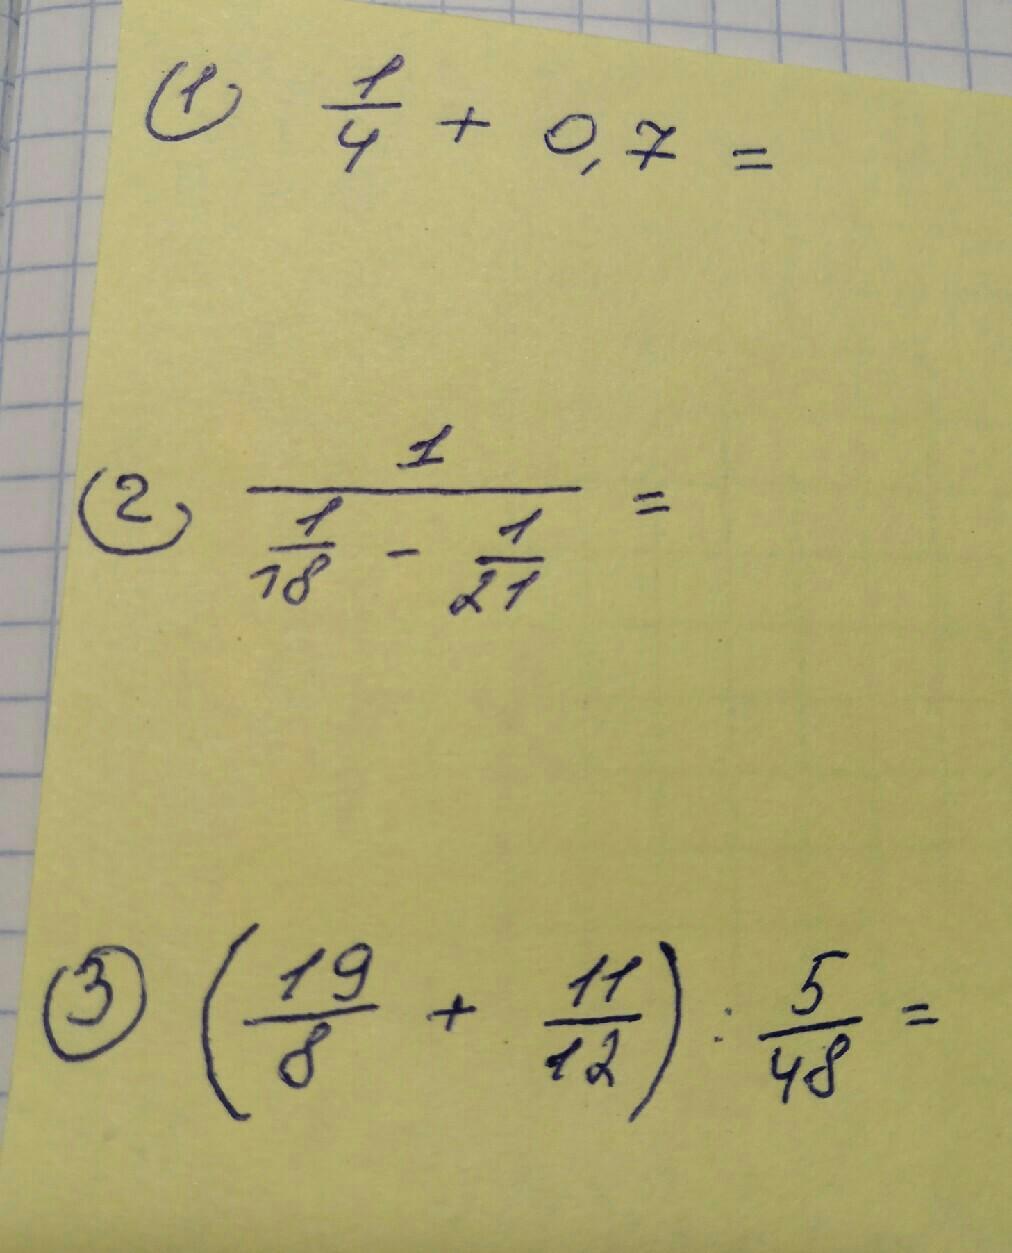 ① 1/4 + 0,7 =
② 1/(1/18 - 1/21) =
③ (19/8 + 11/12) : 5/48 =